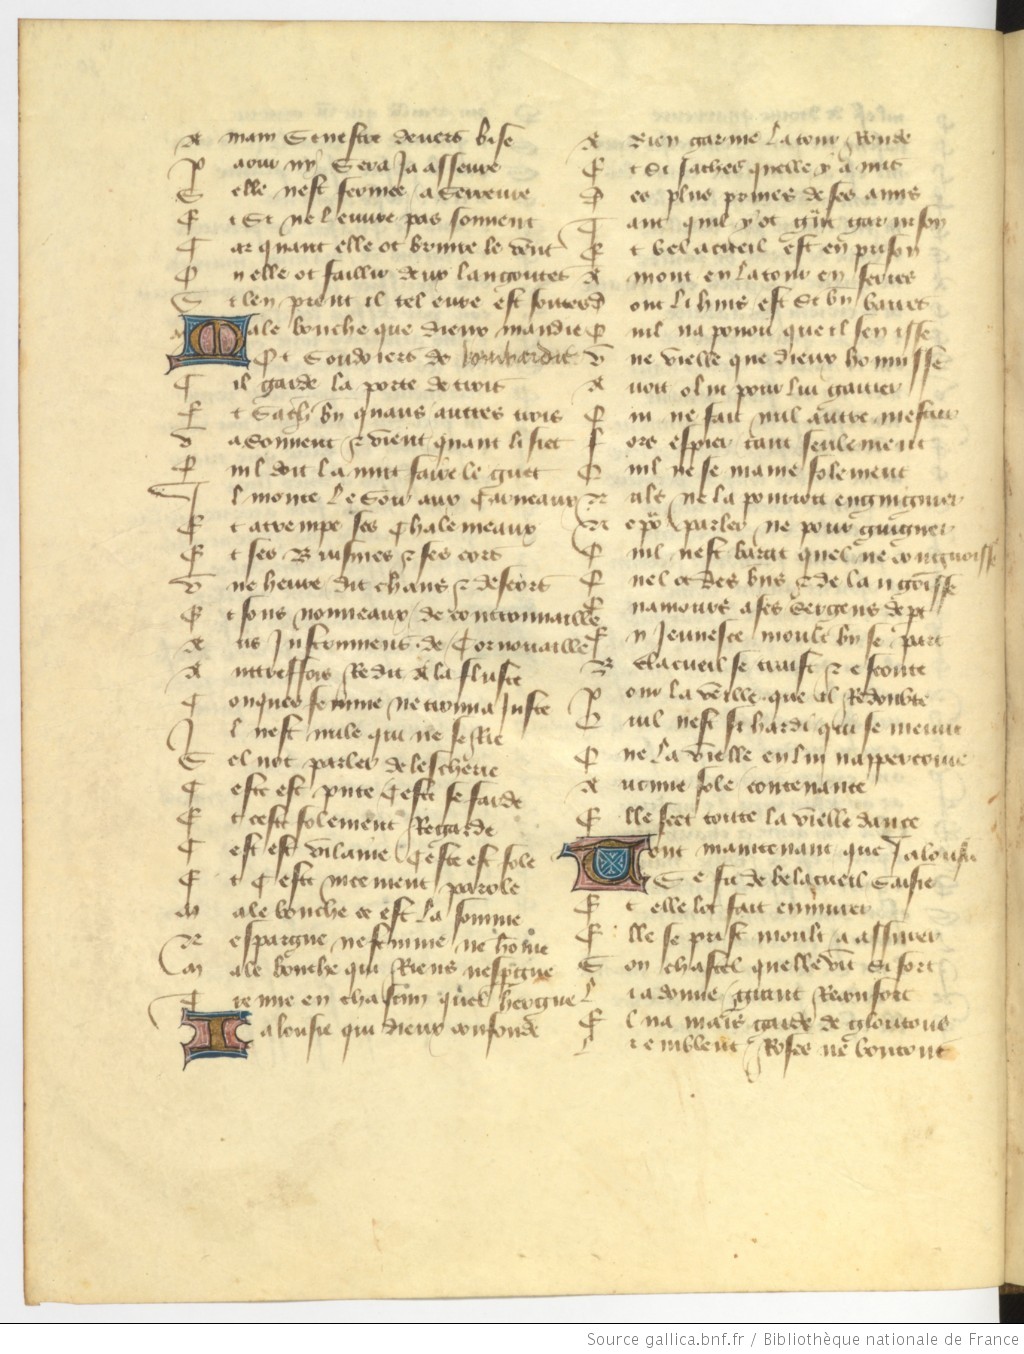 A main senestre devers bise
P aour ny sera ja asseure
S elle nest fermee a serreure
E t si ne leuvre pas souvent
C ar quant elle ot bruire le vent
O u elle ot saillir deux langoutes
S i len prent il tel eure est foutes
M ale bouche que dieux maudie
Ot soudoiers de lombardie
C il garde la porte detroit
E t sachies qu aus autres trois
V a souvent et vient quant li siet
E nil doit la nuit faire le guet
I l monte le soir aux carneaux
E t atrempe ses chalemeaux
E t ses buisines et ses cors
V ne heure dit chans et descors
E t sons nouveaux de controuvaille
A us instrumens de cornouaille
A utreffois redit a la fluste
C onques femme ne trouva juste
I l nest nule qui ne se rie
S el not parler de lescherie
C este est pute ceste se farde
E t ceste folement regarde
C est est vilaine ceste est fole
E t ceste nicement parole
M ale bouche ce est la somme
R espargne ne femme ne homme
M ale bouche qui riens nespergne
T reuve en chascun quelque hergne
I alousie qui dieux confonde
A bien garnie la tour ronde
E t si sachies quelle y a mis
D es plus primes de ses amis
T ant quil y ot grant garnison
E t bel acueil est en prison
A mont en la tour en serres
D ont li huis est si bien barres
E nil na pouoir que il sen isse
V ne vielle que dieux honnisse
A voit o lui pour lui gaitier
E ni ne fait nul autre mestier
F ors espier tant seulement
E nil ne se maine folement
N uls ne la pourroit engignier
N e par parler ne pour guignier
E nil nest barat quel ne congnoisse
E nel ot des biens et de langoisse
E namours a ses sergens depart
E n jeunesce moult bien sa part
B elacueil se taist et escoute
P our la vieille que il redoubte
E nul nest si hardi qui se meuve
E ne la vielle en lui nappercoive
A ucune fole contenance
E lle scet toute la vielle dance
T ont maintenant que jalousie
Se fu de belacueil saisie
E t elle lot fait enmurer
E lle se prist moult a assurer
S on chastel quelle vit si fort
L i a donne grant reconfort
E l na mais garde de gloutons
L i emblent roses ne boutons
Source gallica.bnf.fr / Bibliothèque nationale de France